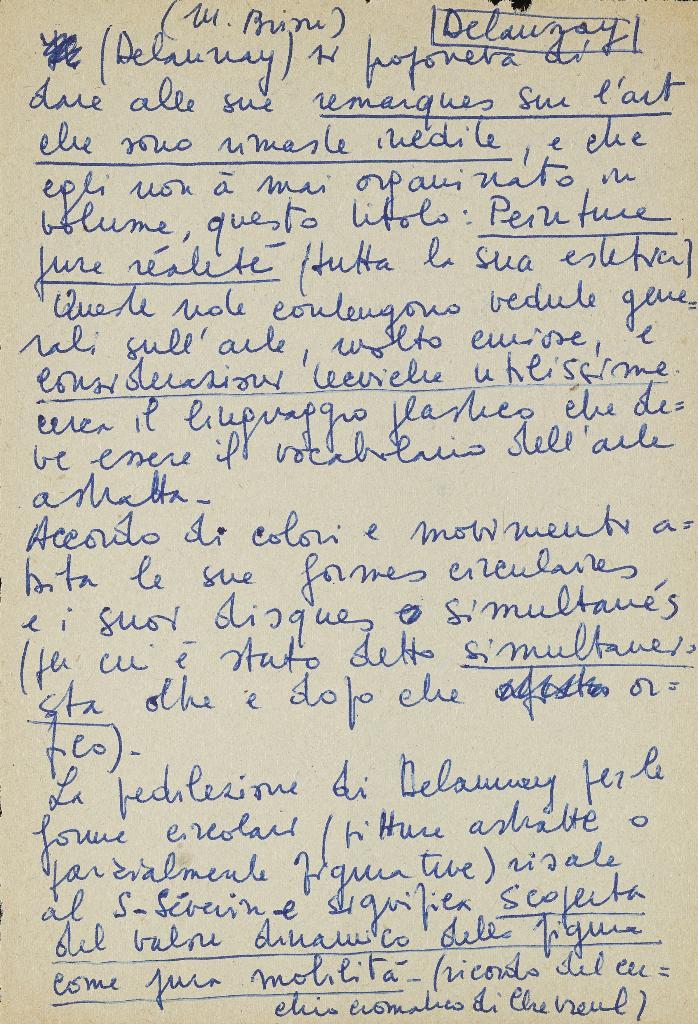 (M. Brion) Delaunay
(Delaunay) si proponeva di
dare alle sue remarques sur l'art
che sono rimaste inedite, e che
egli non à mai organizzato in
volume, questo titolo: Peinture
pure réalité (tutta la sua estetica)
Queste note contengono vedute gene=
rali sull'arte, molto curiose, e
considerazioni tecniche utilissime
circa il linguaggio plastico che de=
ve essere il vocabolario dell'arte
astratta-
Accordo di colori e movimenti a=
bita le sue formes circulaires
e i suoi disques simultanés
(per cui è stato detto simultanei-
sta oltre e dopo che or=
fico)-
La predilezione di Delaunay per le
forme circolari (pitture astratte o
parzialmente figurative) risale
al S-Séverin-e significa scoperta
del valore dinamico della figura
come pura mobilità-(ricordo del cer=
chio cromatico di Chevreul)